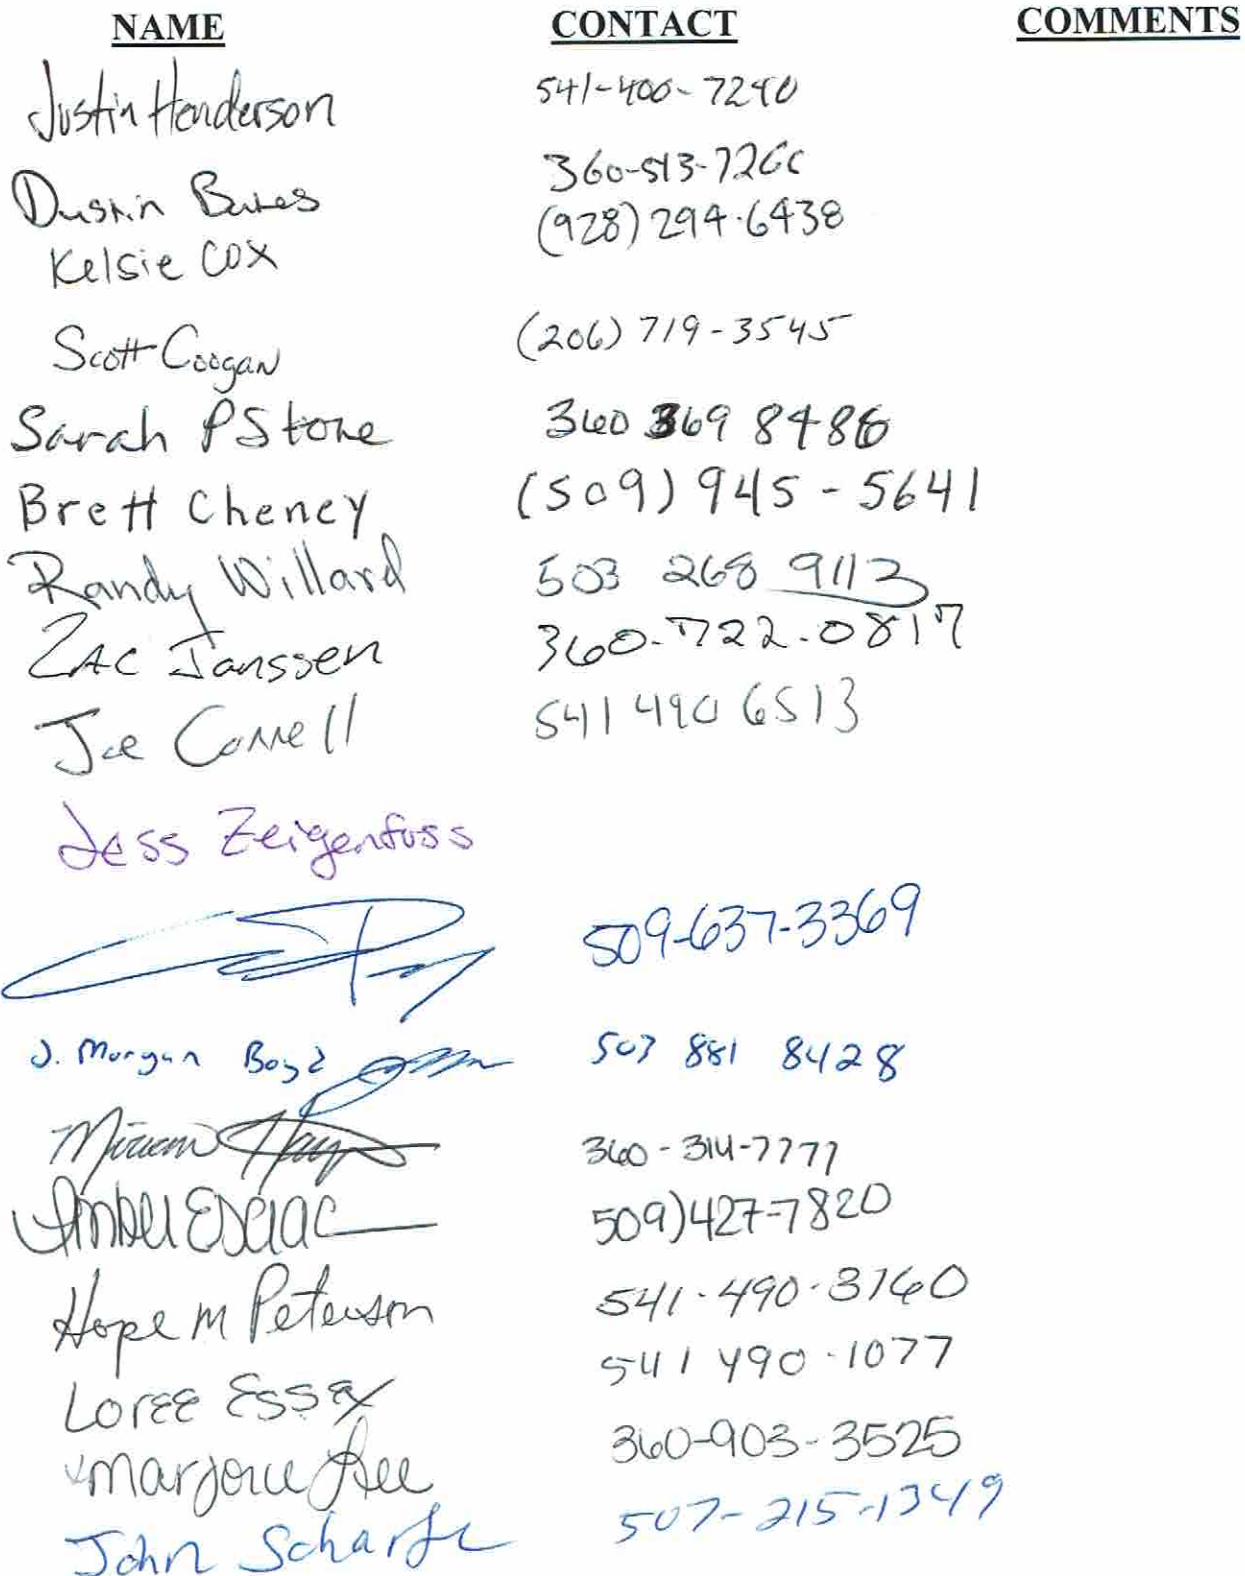 NAME CONTACT COMMENTS
Justin Henderson 541-400-7290
Dustin 360-513-7266
Kelsie COX (928) 294-6438
Scott Coogan (206) 719-3545
Sarah P Stone 360 369 8486
Brett Cheney (509) 945-5641
Randy Willard 503 268 9113
ZAC Janssen 360-722-0817
Joe Connell 541 490 6513
Jess Zeigenfuss
509-637-3369
J. Morgan Boyd 503 881 8428
Miriam 360-314-7777
Amber 509)427-7820
Hope M Peterson 541-490-3760
LOREE ESSEX 541 490-1077
Marjorie Lee 360-903-3525
John Scharfe 507-215-1349